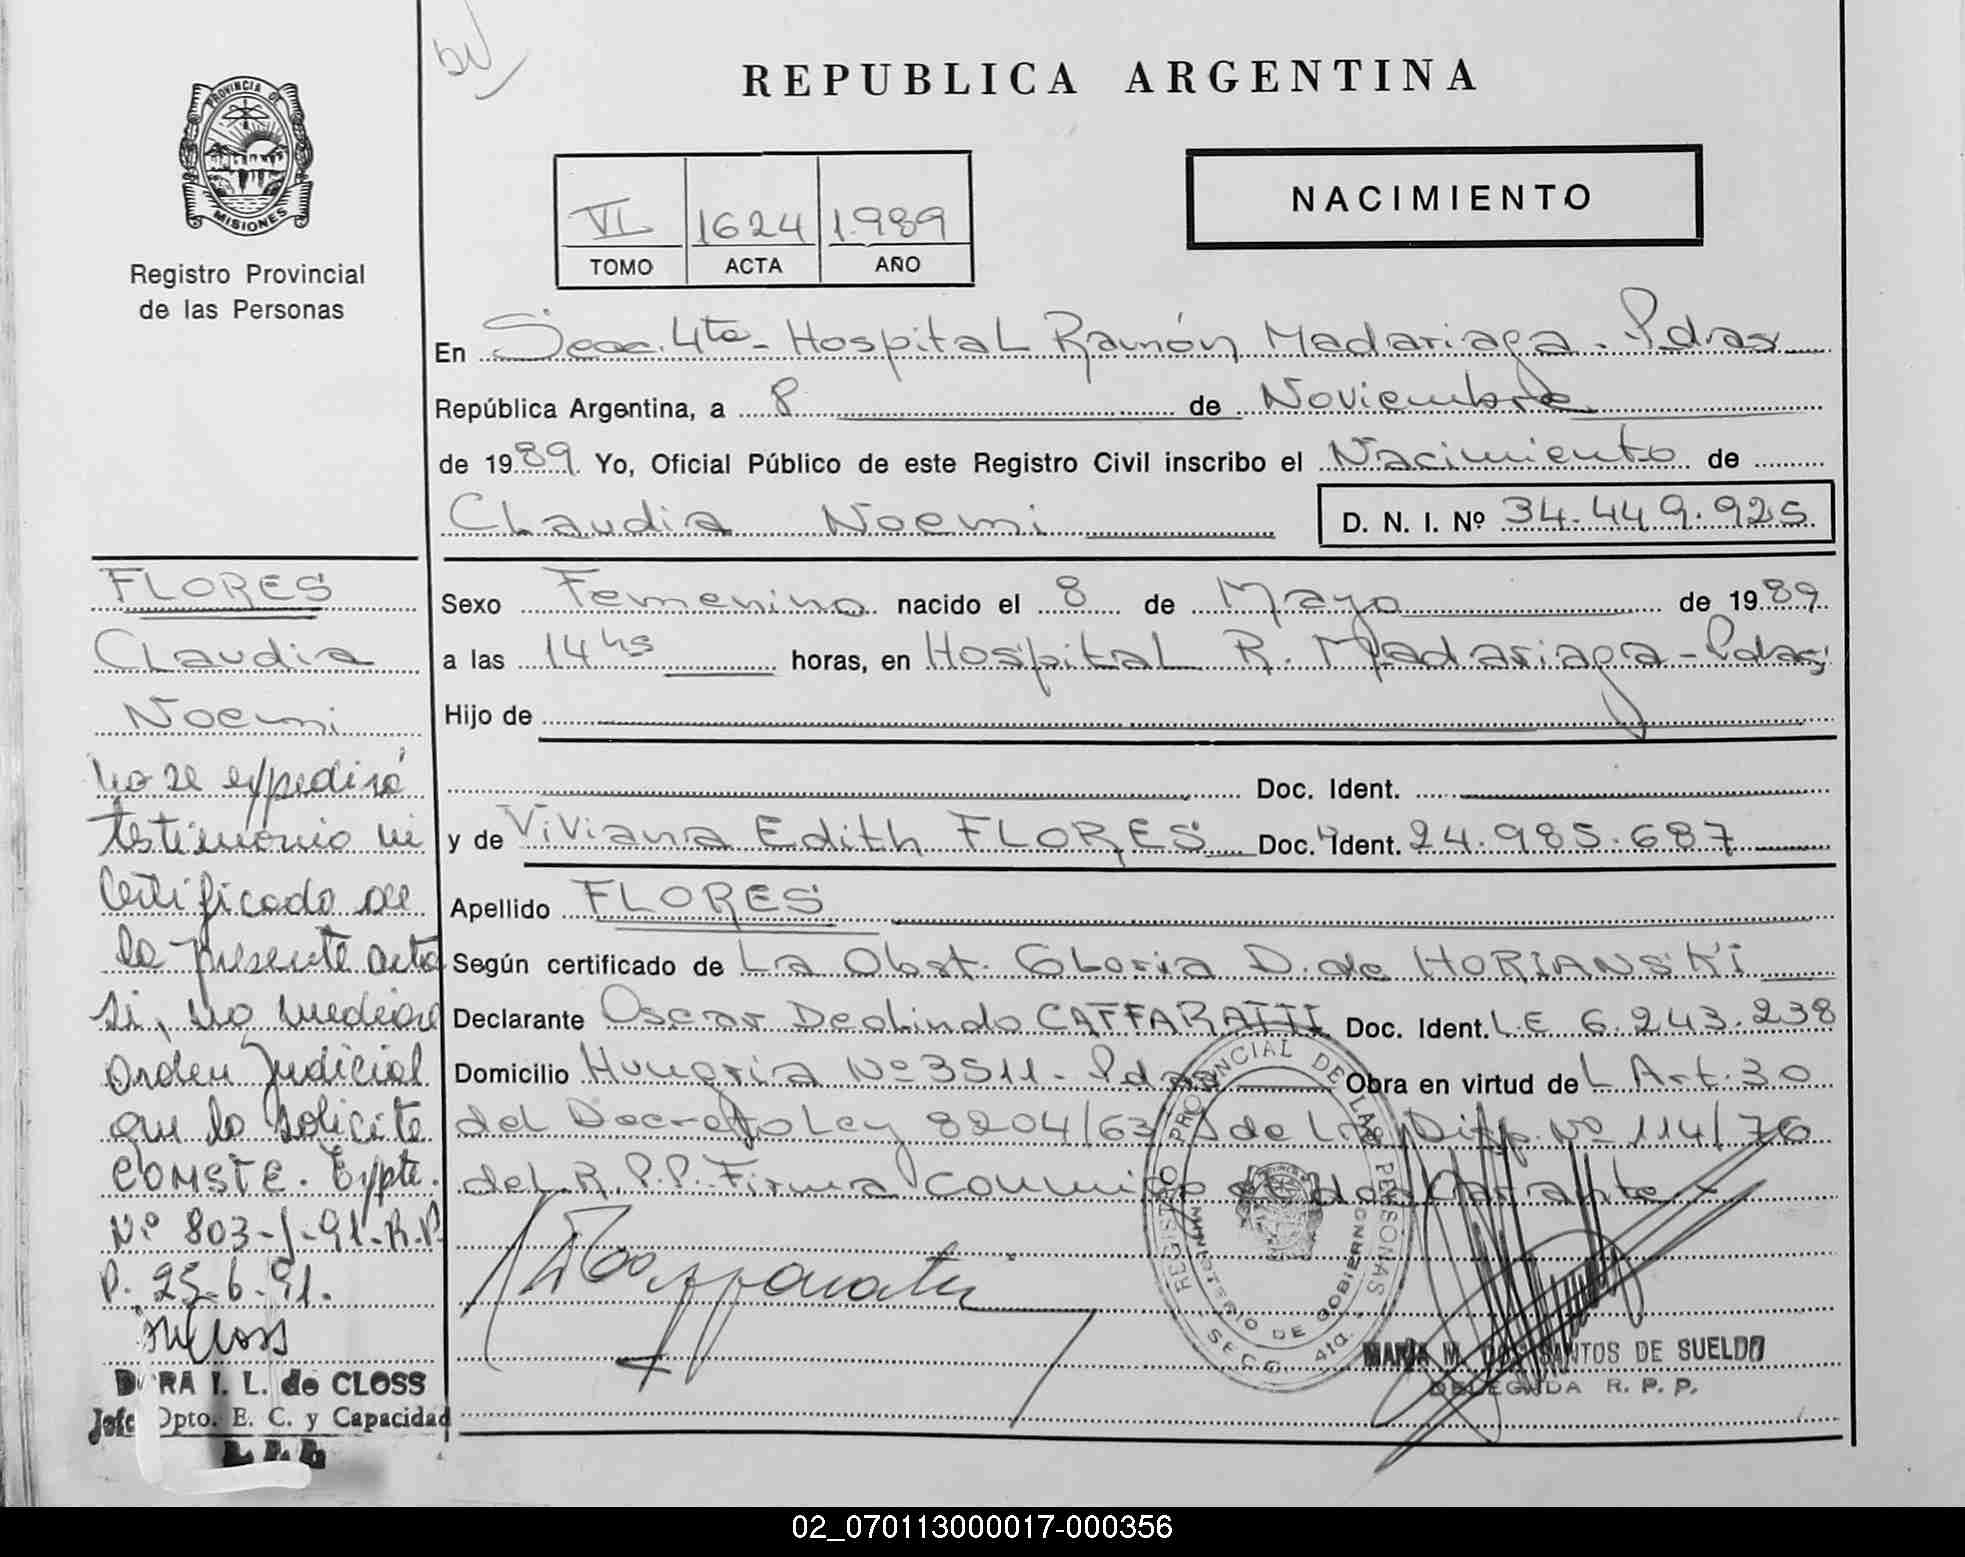 PROVINCIA DE
MISIONES
Registro Provincial
de las Personas
REPUBLICA ARGENTINA
VI 1624 1.989
TOMO ACTA AÑO
NACIMIENTO
En Secc. 4ta - Hospital Ramón Madariaga - Pdas
República Argentina, a 8 de Noviembre
de 1989. Yo, Oficial Público de este Registro Civil inscribo el Nacimiento de
Claudia Noemi D. N. I. Nº 34.449.925
Sexo Femenino nacido el 8 de Mayo de 1989
a las 14 hs horas, en Hospital R. Madariaga - Pdas
Hijo de
Doc. Ident.
y de Viviana Edith FLORES Doc. Ident. 24.985.687
Apellido FLORES
Según certificado de La Obst. Gloria D. de HORIANSKI
Declarante Oscar Deolindo CAFFARATTI Doc. Ident. L.E 6.243.238
Domicilio Hungria Nº 3511 - Pdas Obra en virtud del Art. 30
del Decreto Ley 8204/63 de la Disp. Nº 114/76
del R.P.P. Firma conmigo el declarante
FLORES
Claudia
Noemi
No se expedirá
testimonio ni
Certificado de
la presente acta
si, no mediare
Orden Judicial
que lo solicite
CONSTE. Expte.
Nº 803-J-91-R.P.
P. 25-6-91.
REGISTRO PROVINCIAL DE LAS PERSONAS
MINISTERIO DE GOBIERNO
SECC. 4ta.
MARIA M. DOS SANTOS DE SUELDO
DELEGADA R. P. P.
I. L. de CLOSS
Jefe Dpto. E. C. y Capacidad
02_070113000017-000356